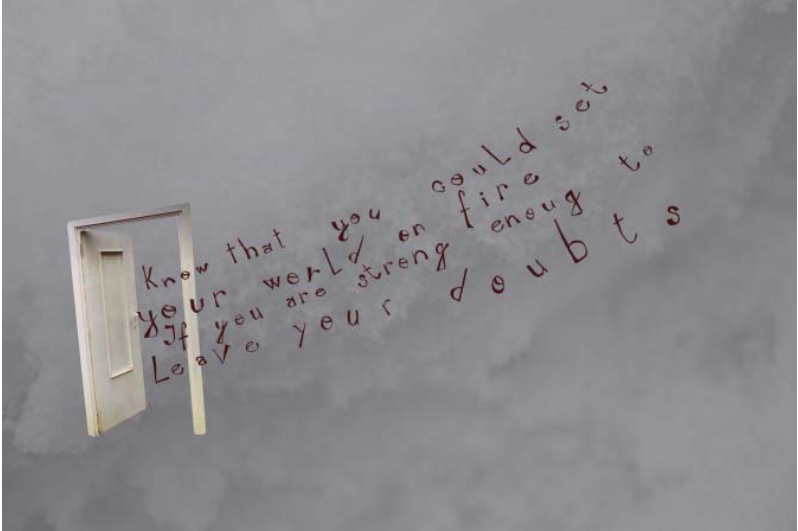 Know that you could set
your world on fire
If you are streng enoug to
Leave your doubts